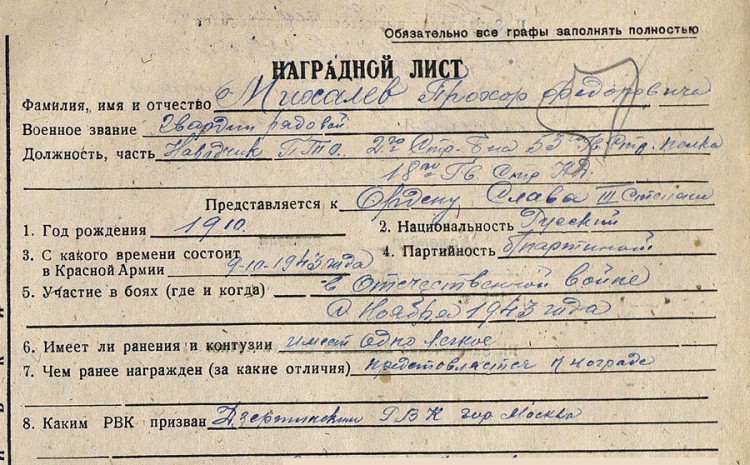 Обязательно все графы заполнять полностью
НАГРАДНОЙ ЛИСТ
Фамилия, имя и отчество Михалев Прохор Федорович
Военное звание Гвардии рядовой
Должность, часть Наводчик ПТО. 2го Стр. б-на 53 Гв Стр. полка
18ой Гв. Стр. КД.
Представляется к Ордену Слава III Степени
1. Год рождения 1910. 2. Национальность Русский
3. С какого времени состоит в Красной Армии 9-10-1943 года 4. Партийность б/партийный
5. Участие в боях (где и когда) в Отечественной войне
с Ноября 1943 года
6. Имеет ли ранения и контузии имеет одно легкое
7. Чем ранее награжден (за какие отличия) к награде
8. Каким РВК призван Дзержинским РВК гор Москва